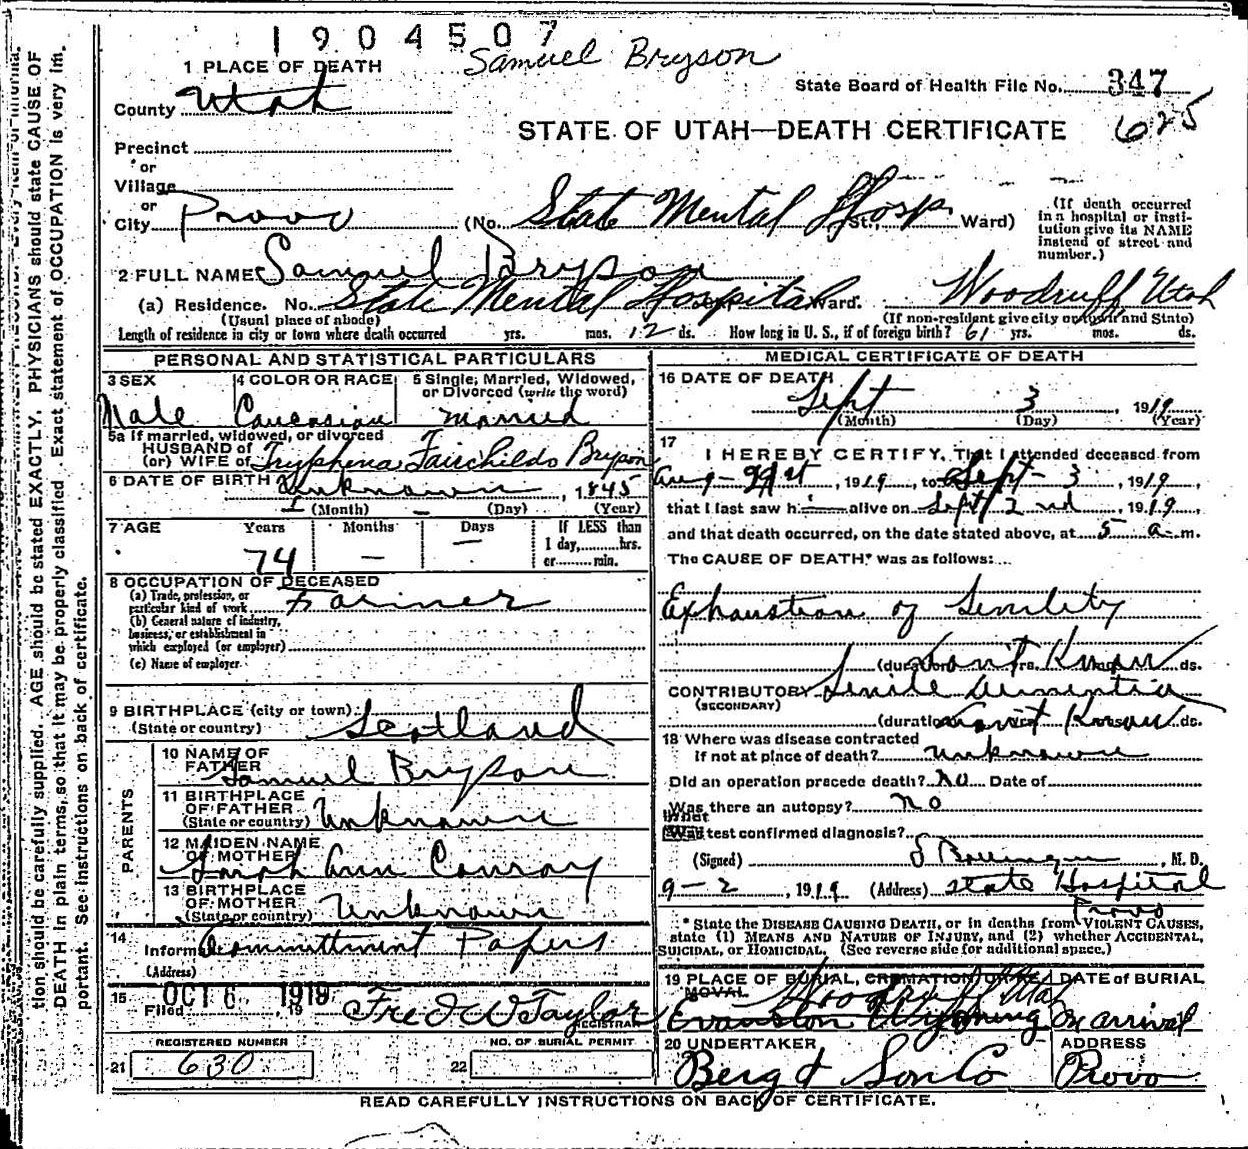 1904507
Samuel Bryson
1 PLACE OF DEATH
State Board of Health File No. 347
County Utah
STATE OF UTAH—DEATH CERTIFICATE 625
Precinct
or
Village
or
City Provo (No. State Mental Hosp. St., Ward)
(If death occurred in a hospital or institution give its NAME instead of street and number.)
2 FULL NAME Samuel Bryson
(a) Residence. No. State Mental Hospital Ward. Woodruff Utah
(Usual place of abode) (If non-resident give city or town and State)
Length of residence in city or town where death occurred yrs. mos. 12 ds. How long in U. S., if of foreign birth? 61 yrs. mos. ds.
PERSONAL AND STATISTICAL PARTICULARS
3 SEX 4 COLOR OR RACE 5 Single, Married, Widowed, or Divorced (write the word)
Male Caucasian Married
5a If married, widowed, or divorced
HUSBAND of
(or) WIFE of Tryphena Fairchilds Bryson
6 DATE OF BIRTH Unknown, 1845
(Month) (Day) (Year)
7 AGE Years Months Days If LESS than
1 day, hrs.
or min.
74 — —
8 OCCUPATION OF DECEASED
(a) Trade, profession, or
particular kind of work Farmer
(b) General nature of industry,
business, or establishment in
which employed (or employer)
(c) Name of employer
9 BIRTHPLACE (city or town)
(State or country) Scotland
PARENTS
10 NAME OF
FATHER Samuel Bryson
11 BIRTHPLACE
OF FATHER
(State or country) Unknown
12 MAIDEN NAME
OF MOTHER Sarah Ann Conroy
13 BIRTHPLACE
OF MOTHER
(State or country) Unknown
14
Inform Committment Papers
(Address)
15 OCT 6 1919
Filed , 19 Fred W Taylor
REGISTRAR
REGISTERED NUMBER NO. OF BURIAL PERMIT
21 630 22
MEDICAL CERTIFICATE OF DEATH
16 DATE OF DEATH
Sept 3, 1919
(Month) (Day) (Year)
17
I HEREBY CERTIFY, That I attended deceased from
Aug - 21st, 1919, to Sept - 3, 1919,
that I last saw h alive on Sept 2nd, 1919,
and that death occurred, on the date stated above, at 5 a m.
The CAUSE OF DEATH* was as follows:
Exhaustion of Senility
(duration) Don't Know ds.
CONTRIBUTORY Senile Dementia
(SECONDARY)
(duration) Don't Know ds.
18 Where was disease contracted
if not at place of death? unknown
Did an operation precede death? No Date of
Was there an autopsy? no
What test confirmed diagnosis?
(Signed) , M. D.
9-2, 1919 (Address) State Hospital
Provo
* State the DISEASE CAUSING DEATH, or in deaths from VIOLENT CAUSES,
state (1) MEANS AND NATURE OF INJURY, and (2) whether ACCIDENTAL,
SUICIDAL, or HOMICIDAL. (See reverse side for additional space.)
19 PLACE OF BURIAL, CREMATION OR RE- DATE of BURIAL
MOVAL Woodruff Utah
Evanston Wyoming On arrival
20 UNDERTAKER ADDRESS
Berg & Son Co Provo
READ CAREFULLY INSTRUCTIONS ON BACK OF CERTIFICATE.
tion should be carefully supplied. AGE should be stated EXACTLY. PHYSICIANS should state CAUSE OF
DEATH in plain terms, so that it may be properly classified. Exact statement of OCCUPATION is very im-
portant. See instructions on back of certificate.